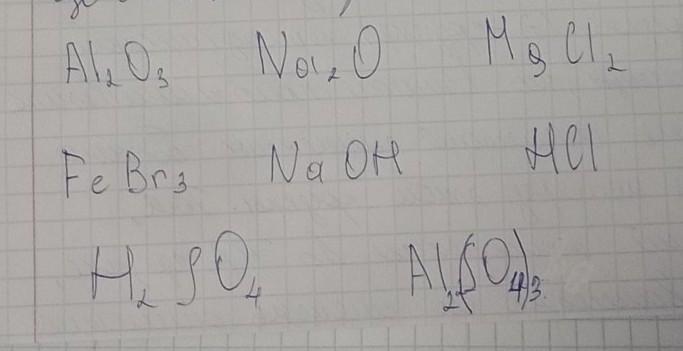 Al₂O₃ Na₂O MgCl₂
FeBr₃ NaOH HCl
H₂SO₄ Al₂(SO₄)₃